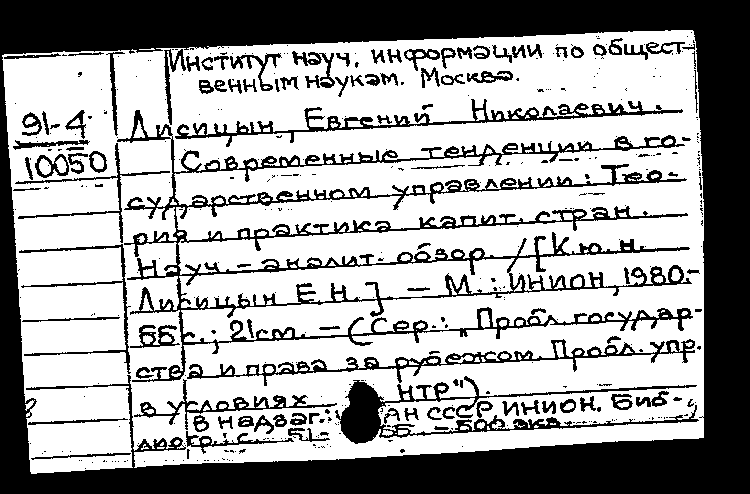 Институт науч. информации по общест-
венным наукам. Москва.
91-4
10050
Лисицын, Евгений Николаевич.
Современные тенденции в го-
сударственном управлении: Тео-
рия и практика капит. стран.
Науч.-аналит. обзор. / [К.ю.н.
Лисицын Е.Н.] - М.: ИНИОН, 1980.-
55 с.; 21 см. - (Сер.: "Пробл. государ-
ства и права за рубежом. Пробл. упр.
в условиях НТР").
В надзаг.: АН СССР, ИНИОН. Биб-
лиогр.: с. 51-55. - 500 экз.